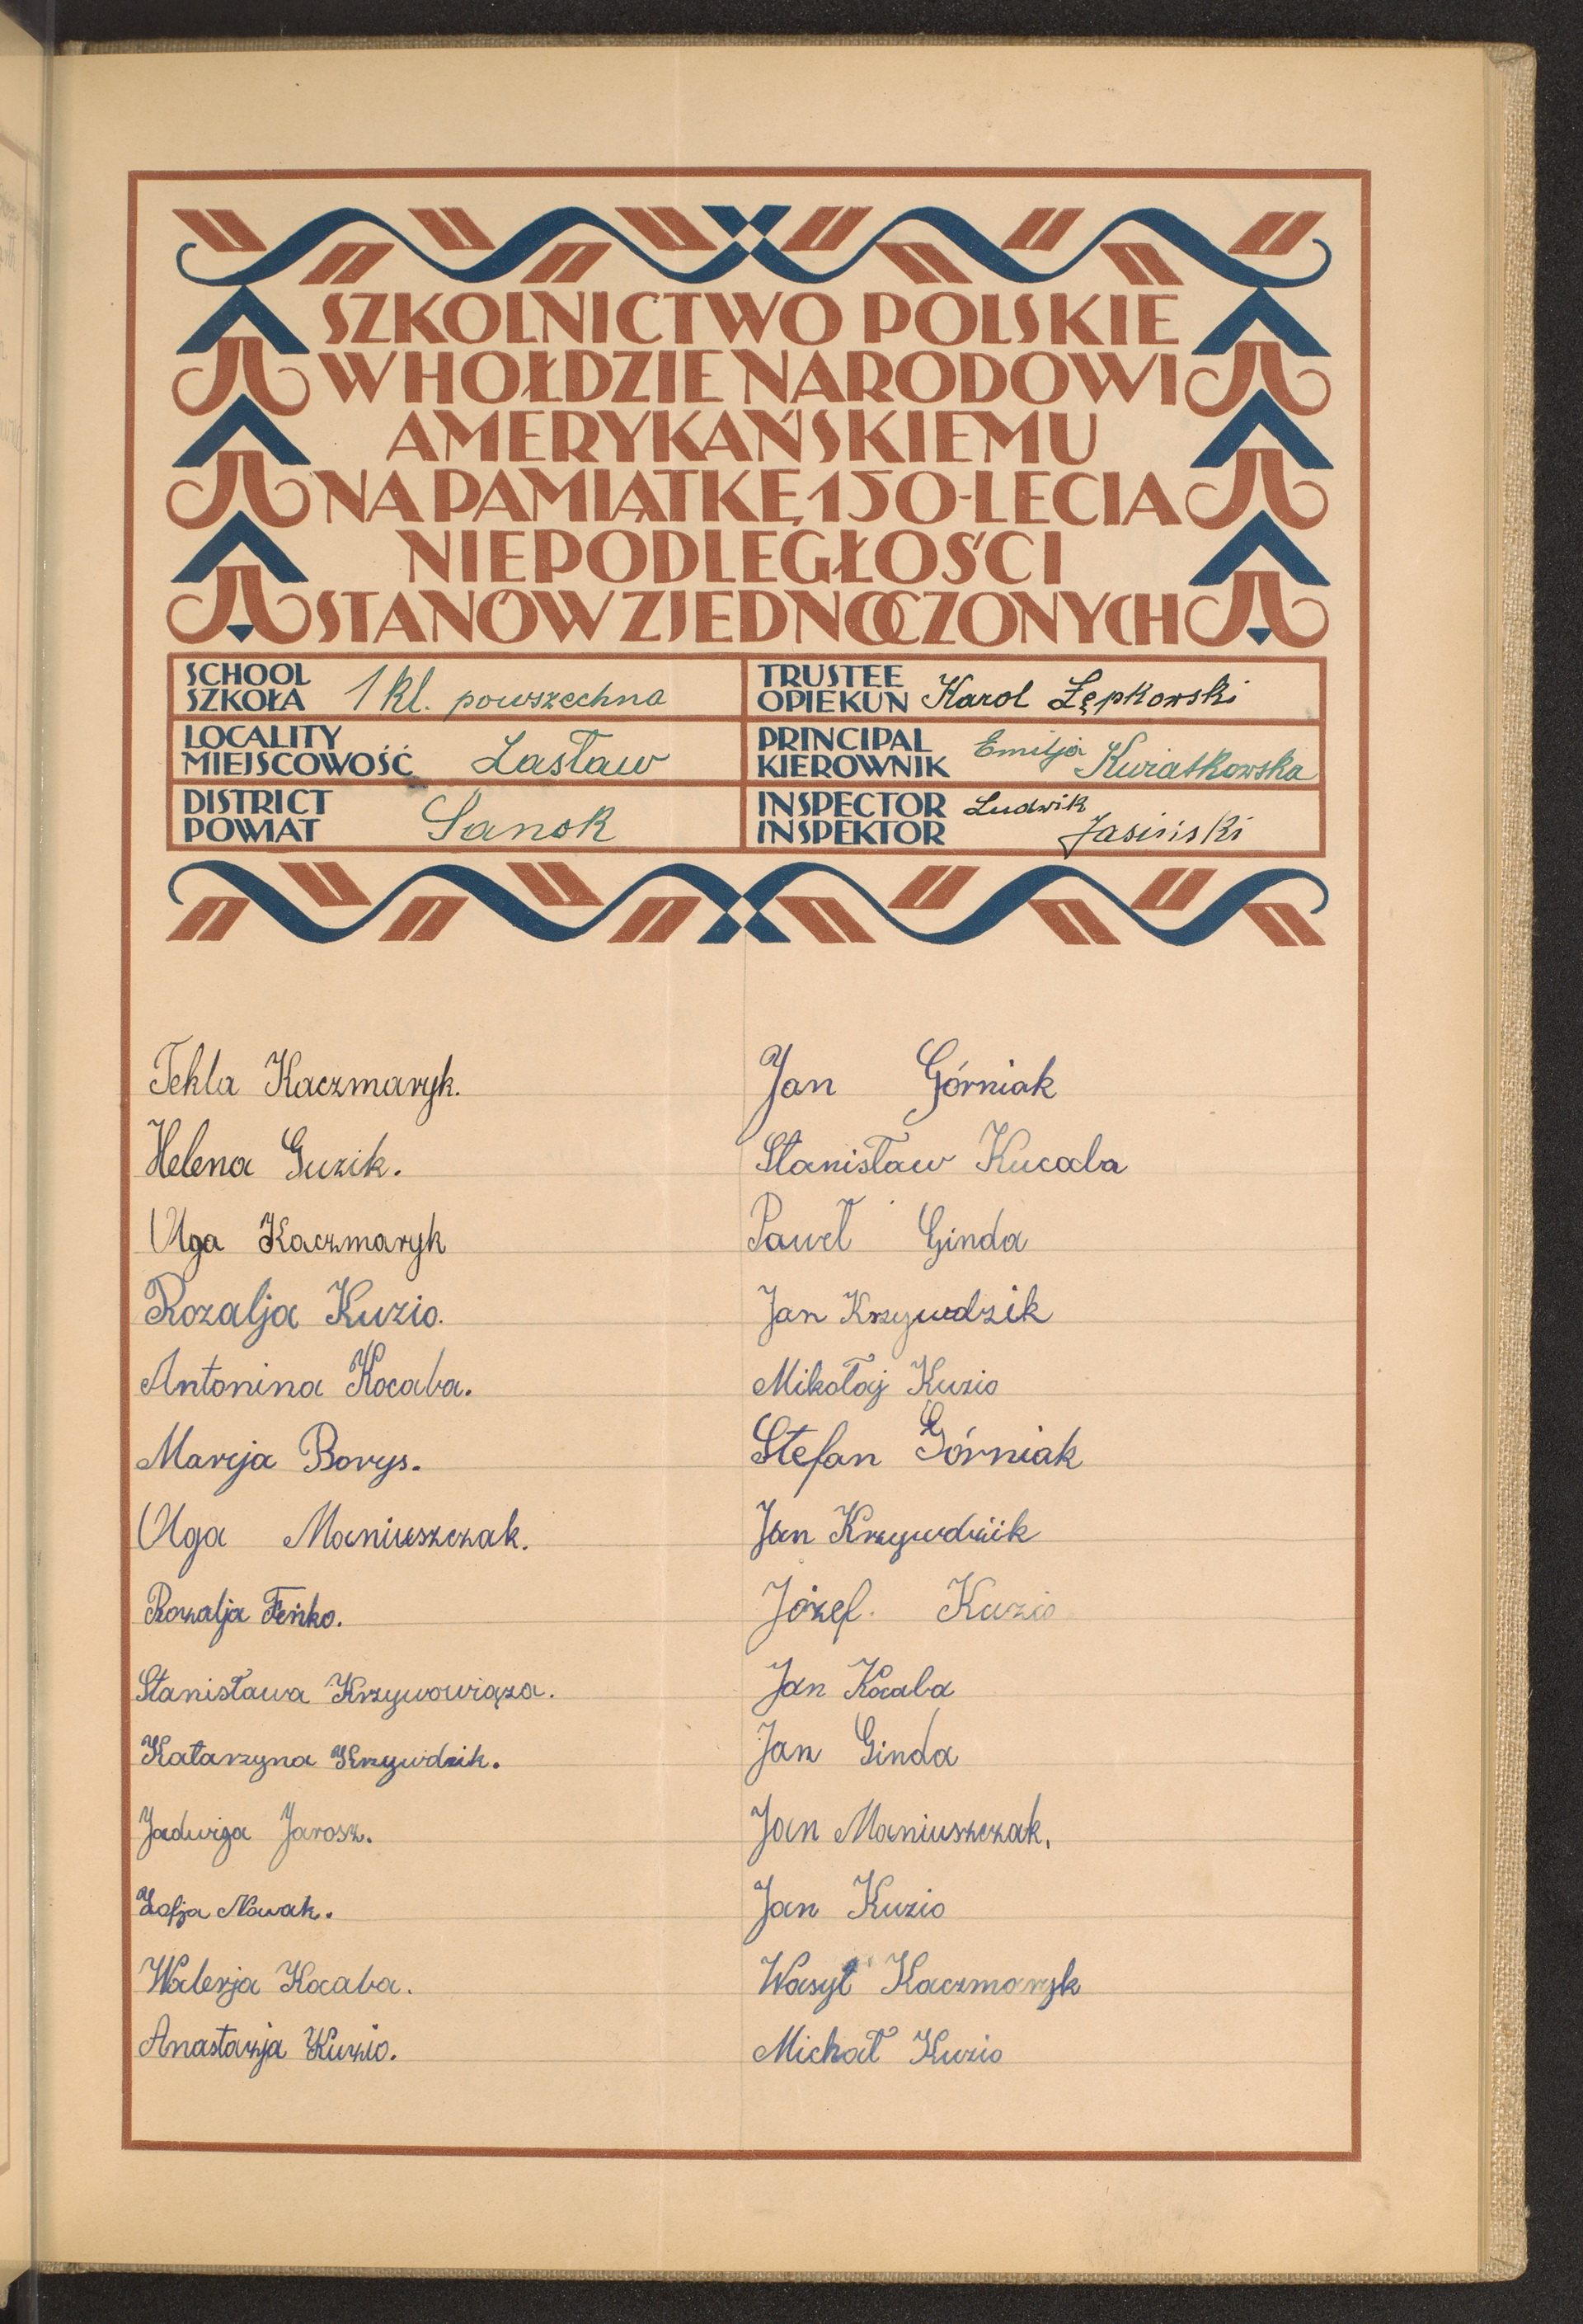 SZKOLNICTWO POLSKIE
W HOŁDZIE NARODOWI
AMERYKAŃSKIEMU
NA PAMIĄTKĘ 150-LECIA
NIEPODLEGŁOŚCI
STANÓW ZJEDNOCZONYCH
SCHOOL
SZKOŁA 1 kl. powszechna
TRUSTEE
OPIEKUN Karol Łępkowski
LOCALITY
MIEJSCOWOŚĆ Zasław
PRINCIPAL
KIEROWNIK Emilja Kwiatkowska
DISTRICT
POWIAT Sanok
INSPECTOR
INSPEKTOR Ludwik Jasiński
Tekla Kaczmaryk.
Helena Guzik.
Olga Kaczmaryk
Rozalja Kuzio.
Antonina Kocaba.
Marja Borys.
Olga Maniuszczak.
Rozalja Feńko.
Stanisława Krzywowiąza.
Katarzyna Krzywdzik.
Jadwiga Jarosz.
Zofja Nowak.
Walerja Kocaba.
Anastazja Kuzio.
Jan Górniak
Stanisław Kucaba
Paweł Ginda
Jan Krzywdzik
Mikołaj Kuzio
Stefan Górniak
Jan Krzywdzik
Józef. Kuzio
Jan Kocaba
Jan Ginda
Jan Maniuszczak,
Jan Kuzio
Wasyl Kaczmaryk
Michał Kuzio